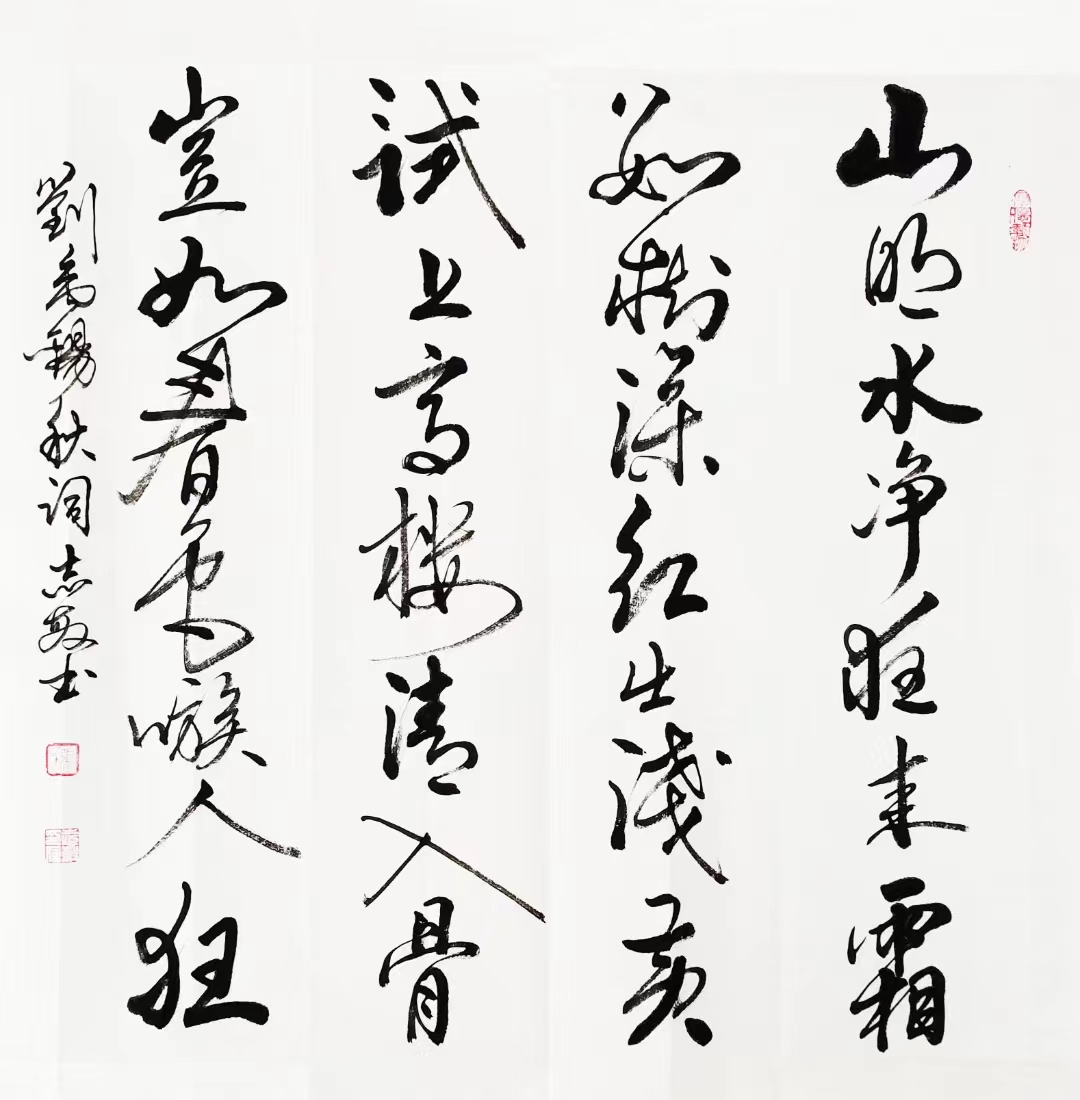 山明水净狂来霜
数樹深红出淺黄
試上高楼清入骨
豈如春色嗾人狂
劉禹錫秋詞志敏书